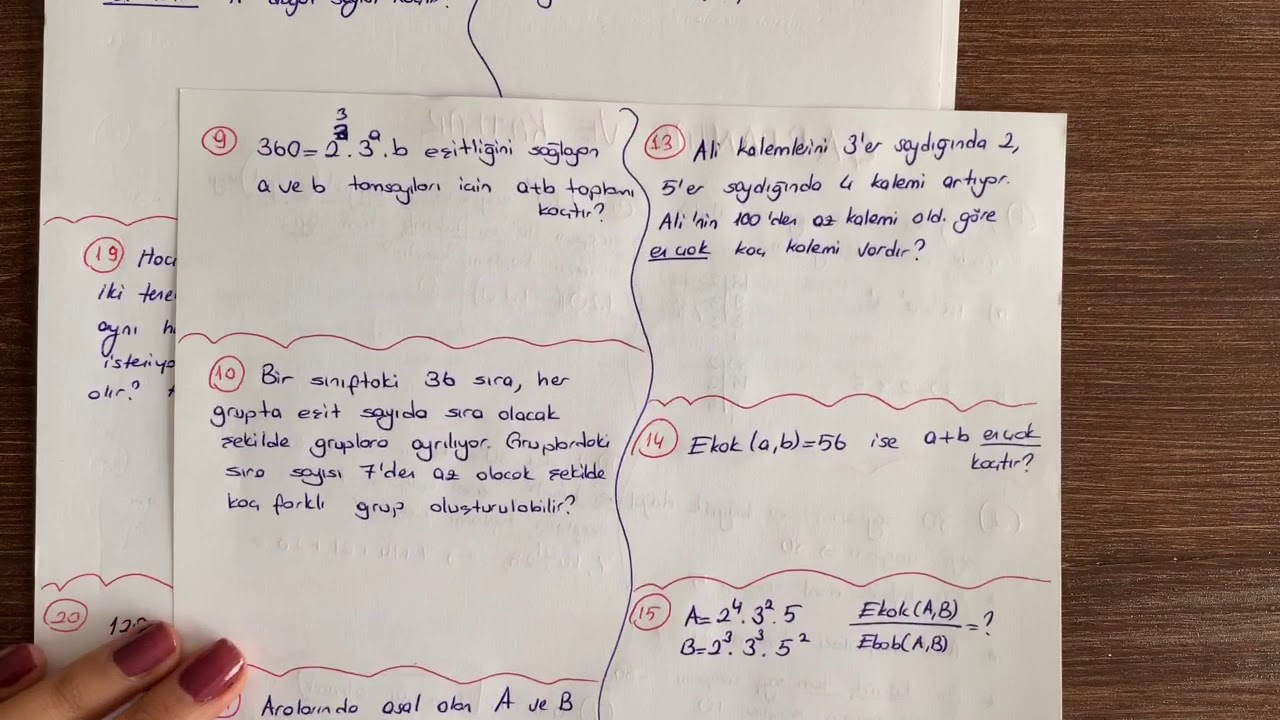 9 360=2³.3ᵃ.b eşitliğini sağlayan
a ve b tamsayıları için a+b toplamı
kaçtır?
10 Bir sınıftaki 36 sıra, her
grupta eşit sayıda sıra olacak
şekilde gruplara ayrılıyor. Gruplardaki
sıra sayısı 7'den az olacak şekilde
kaç farklı grup oluşturulabilir?
Aralarında asal olan A ve B
13 Ali kalemlerini 3'er saydığında 2,
5'er saydığında 4 kalemi artıyor.
Ali'nin 100'den az kalemi old. göre
en çok kaç kalemi vardır?
14 Ekok(a,b)=56 ise a+b en çok
kaçtır?
15 A=2⁴.3².5
B=2³.3³.5²
Ekok(A,B)
Ebob(A,B)
=?
19
iki
aynı
olır?
20